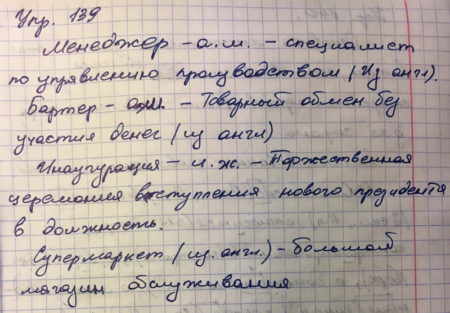 Упр. 139
Менеджер - а.м. - специалист
по управлению производством (Из англ).
Бартер - - Товарный обмен без
участия денег (из англ)
Инаугурация - и.ж. - Торжественная
церемония вступления нового президента
в должность.
Супермаркет (из. англ.) - большой
магазин обслуживания